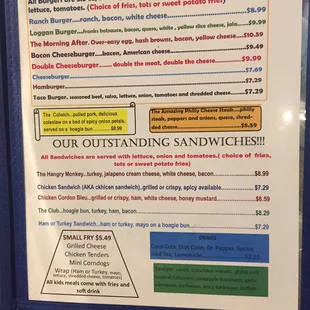 All Burgers are
lettuce, tomatoes. (Choice of fries, tots or sweet potato fries)
Ranch Burger....ranch, bacon, white cheese $8.99
Loggan Burger....franks hotsauce, bacon, queso, white , yellow slice cheese, jala $9.99
The Morning After. Over-easy egg, hash browns, bacon, yellow cheese $10.59
Bacon Cheeseburger....bacon, American cheese $9.49
Double Cheeseburger....... double the meat, double the cheese $9.99
Cheeseburger $7.69
Hamburger $7.29
Taco Burger, seasoned beef, salsa, lettuce, onion, tomatoes and shredded cheese $7.29
The Colwich...pulled pork, delicious
coleslaw on a bed of spicy onion petals,
served on a hoagie bun $8.99
The Amazing Philly Cheese Steak...philly
steak, peppers and onions, queso, shred-
ded cheese $8.59
OUR OUTSTANDING SANDWICHES!!!
All Sandwiches are served with lettuce, onion and tomatoes.( choice of fries,
tots or sweet potato fries)
The Hangry Monkey...turkey, jalapeno cream cheese, white cheese, bacon $8.59
Chicken Sandwich (AKA chkicen sandwich)..grilled or crispy, spicy available $7.29
Chicken Cordon Bleu...grilled or crispy, ham, white cheese, honey mustard $8.59
The Club...hoagie bun, turkey, ham, bacon $8.29
Ham or Turkey Sandwich...ham or turkey, mayo on a hoagie bun $7.29
SMALL FRY $5.49
Grilled Cheese
Chicken Tenders
Mini Corndogs
Wrap (Ham or Turkey, mayo,
lettuce, shredded cheese, tomatoes)
All kids meals come with fries and
soft drink
DRINKS
Coca Cola, Diet Coke, Dr. Pepper, Sprite,
Iced Tea, Lemonade $2.25